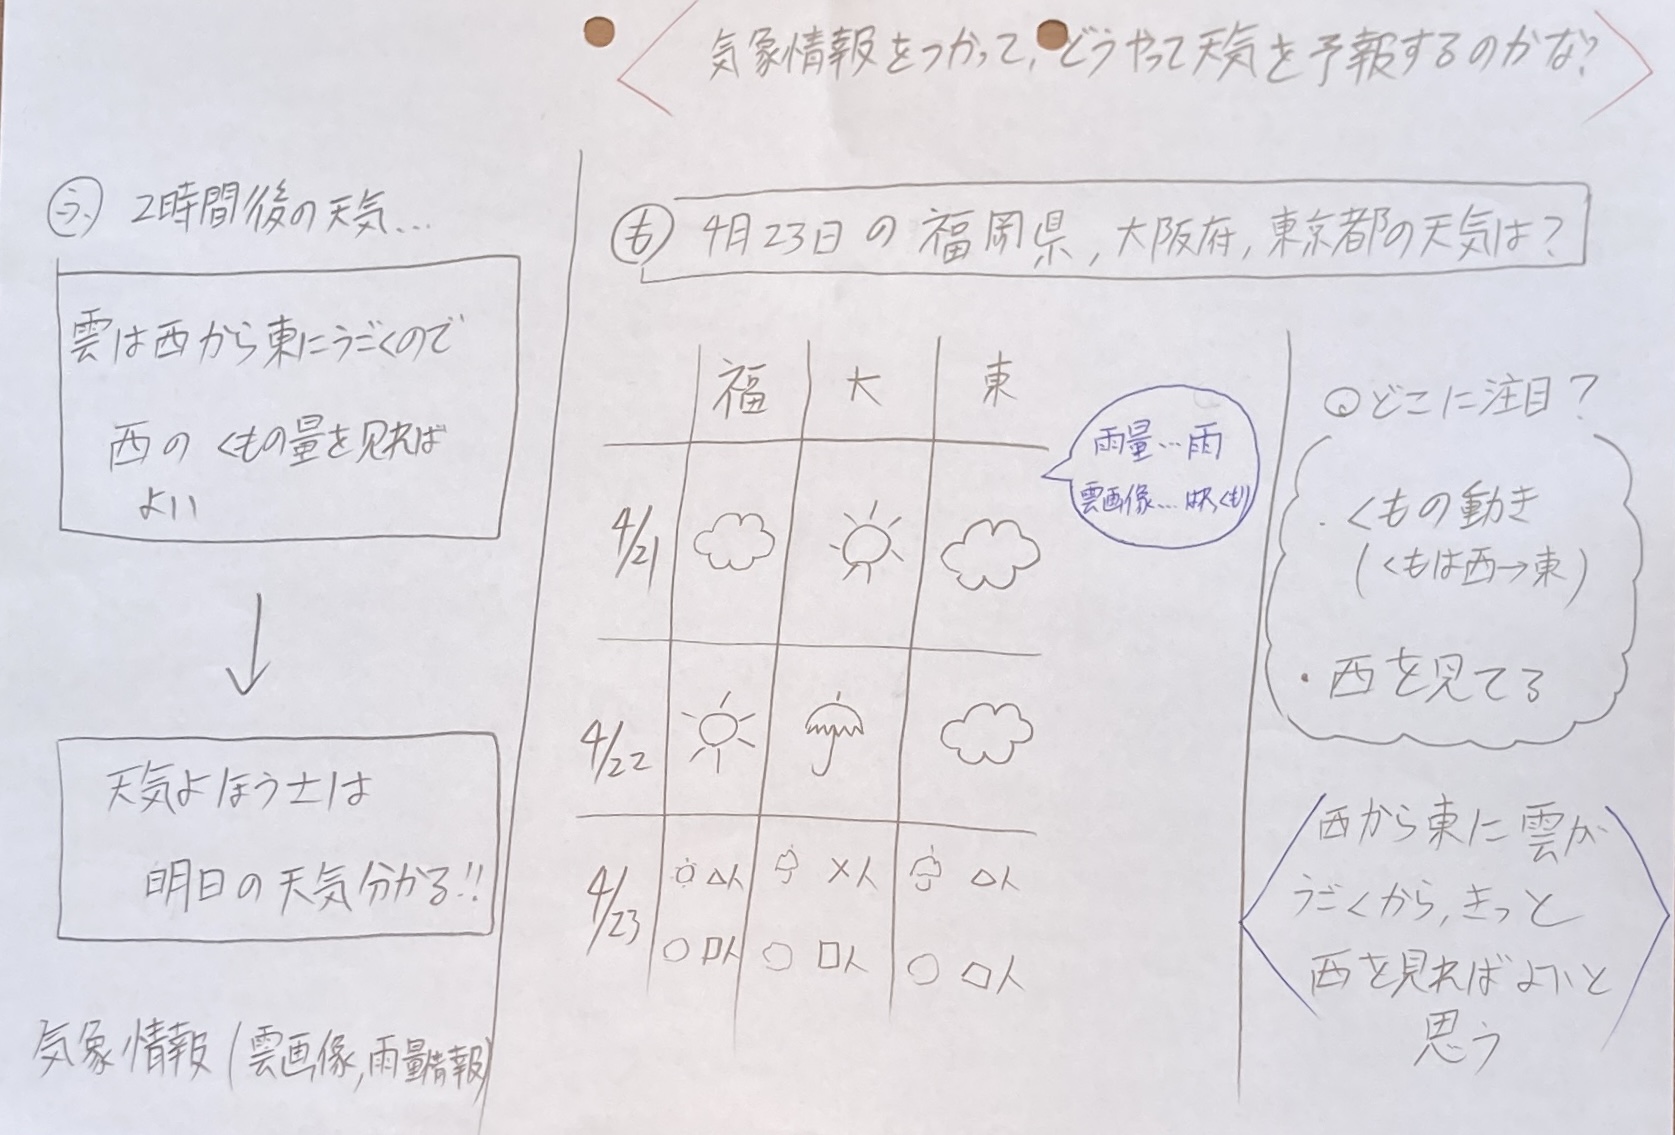 気象情報をつかって、どうやって天気を予報するのかな?
う 2時間後の天気…
雲は西から東にうごくので
西のくもの量を見れば
よい
天気よほう士は
明日の天気分かる!!
気象情報(雲画像,雨量情報)
も 4月23日の福岡県,大阪府,東京都の天気は?
福 大 東
4/21
4/22
4/23
△人 ×人 △人
○ 口人 ○ 口人 ○ ◇人
雨量…雨
雲画像…はれくもり
どこに注目?
・くもの動き
(くもは西→東)
・西を見てる
西から東に雲が
うごくから,きっと
西を見ればよいと
思う